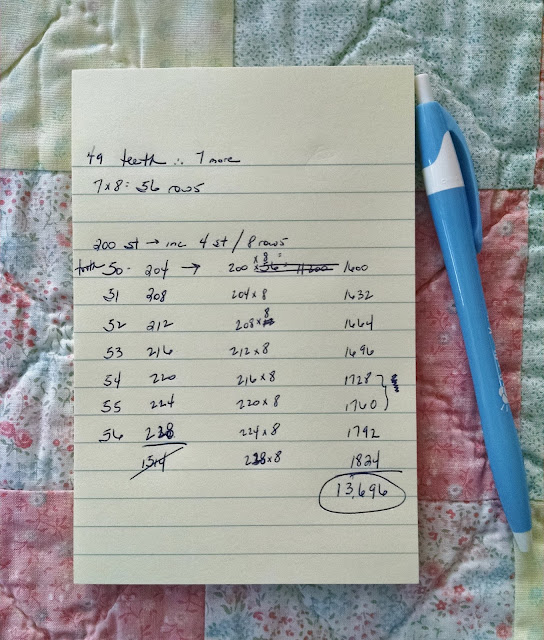 49 teeth ∴ 7 more
7 x 8 = 56 rows
200 st → inc 4 st / 8 rows
tooth 50 - 204 → 200 x 8 = 1600
51 208 204 x 8 1632
52 212 208 x 8 1664
53 216 212 x 8 1696
54 220 216 x 8 1728
55 224 220 x 8 1760
56 228 224 x 8 1792
1514 228 x 8 1824
13,696